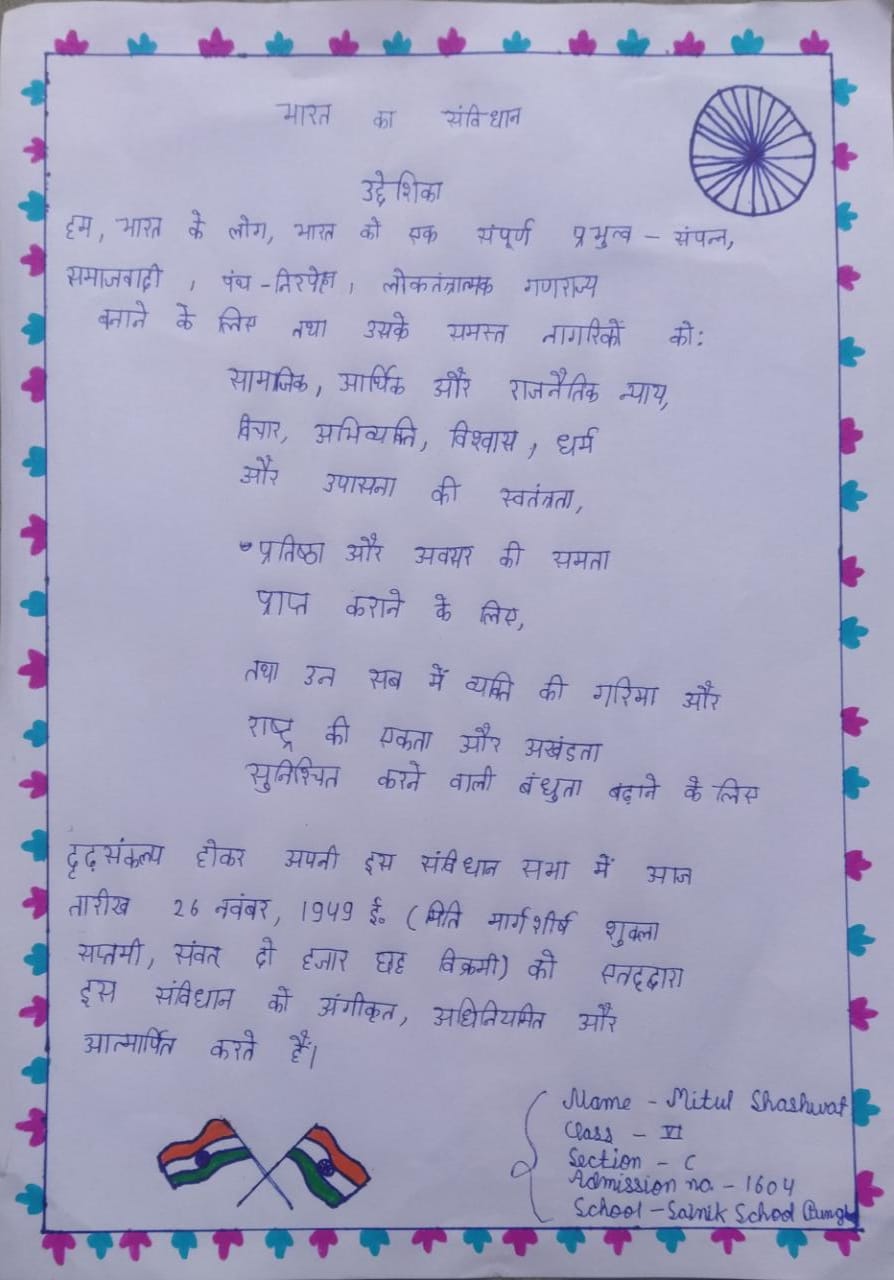 भारत का संविधान
उद्देशिका
हम, भारत के लोग, भारत को एक संपूर्ण प्रभुत्व - संपन्न,
समाजवादी , पंथ -निरपेक्ष, लोकतंत्रात्मक गणराज्य
बनाने के लिए तथा उसके समस्त नागरिकों को:
सामाजिक, आर्थिक और राजनैतिक न्याय,
विचार, अभिव्यक्ति, विश्वास , धर्म
और उपासना की स्वतंत्रता,
प्रतिष्ठा और अवसर की समता
प्राप्त कराने के लिए,
तथा उन सब में व्यक्ति की गरिमा और
राष्ट्र की एकता और अखंडता
सुनिश्चित करने वाली बंधुता बढ़ाने के लिए
दृढ़संकल्प होकर अपनी इस संविधान सभा में आज
तारीख 26 नवंबर, 1949 ई॰ (मिति मार्गशीर्ष शुक्ला
सप्तमी, संवत् दो हजार छह विक्रमी) को एतद्द्वारा
इस संविधान को अंगीकृत, अधिनियमित और
आत्मार्पित करते हैं।
Name - Mitul Shashwat
Class - VI
Section - C
Admission no. - 1604
School - Sainik School